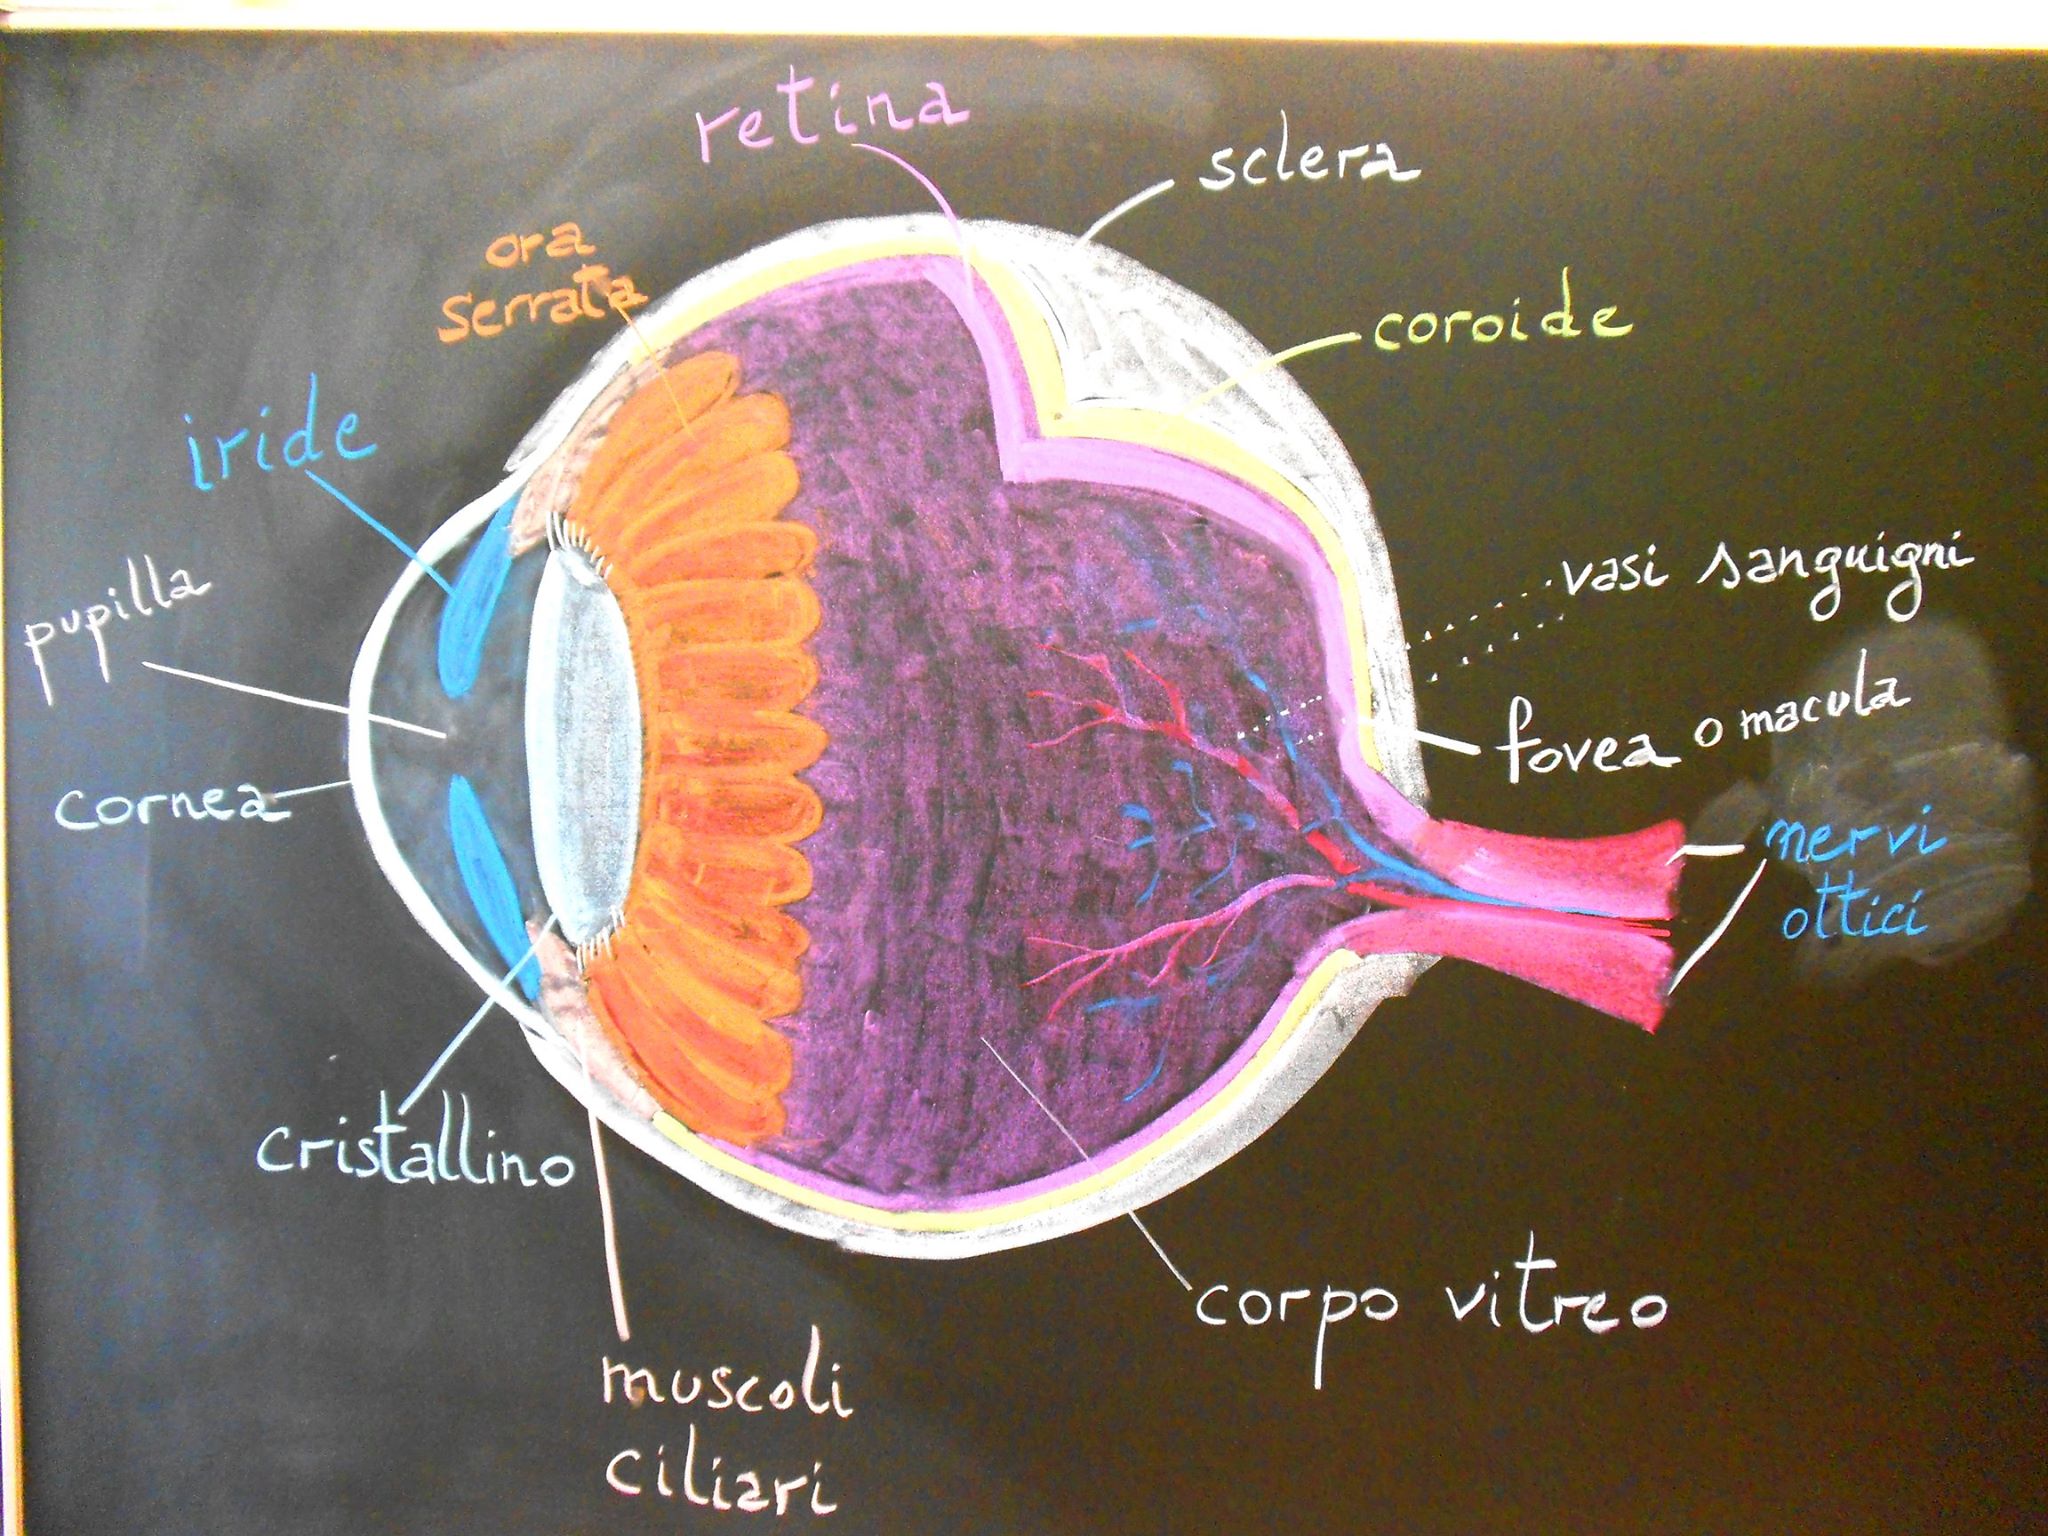 retina
sclera
ora
serrata
coroide
iride
vasi sanguigni
pupilla
fovea o macula
cornea
nervi
ottici
cristallino
corpo vitreo
muscoli
ciliari